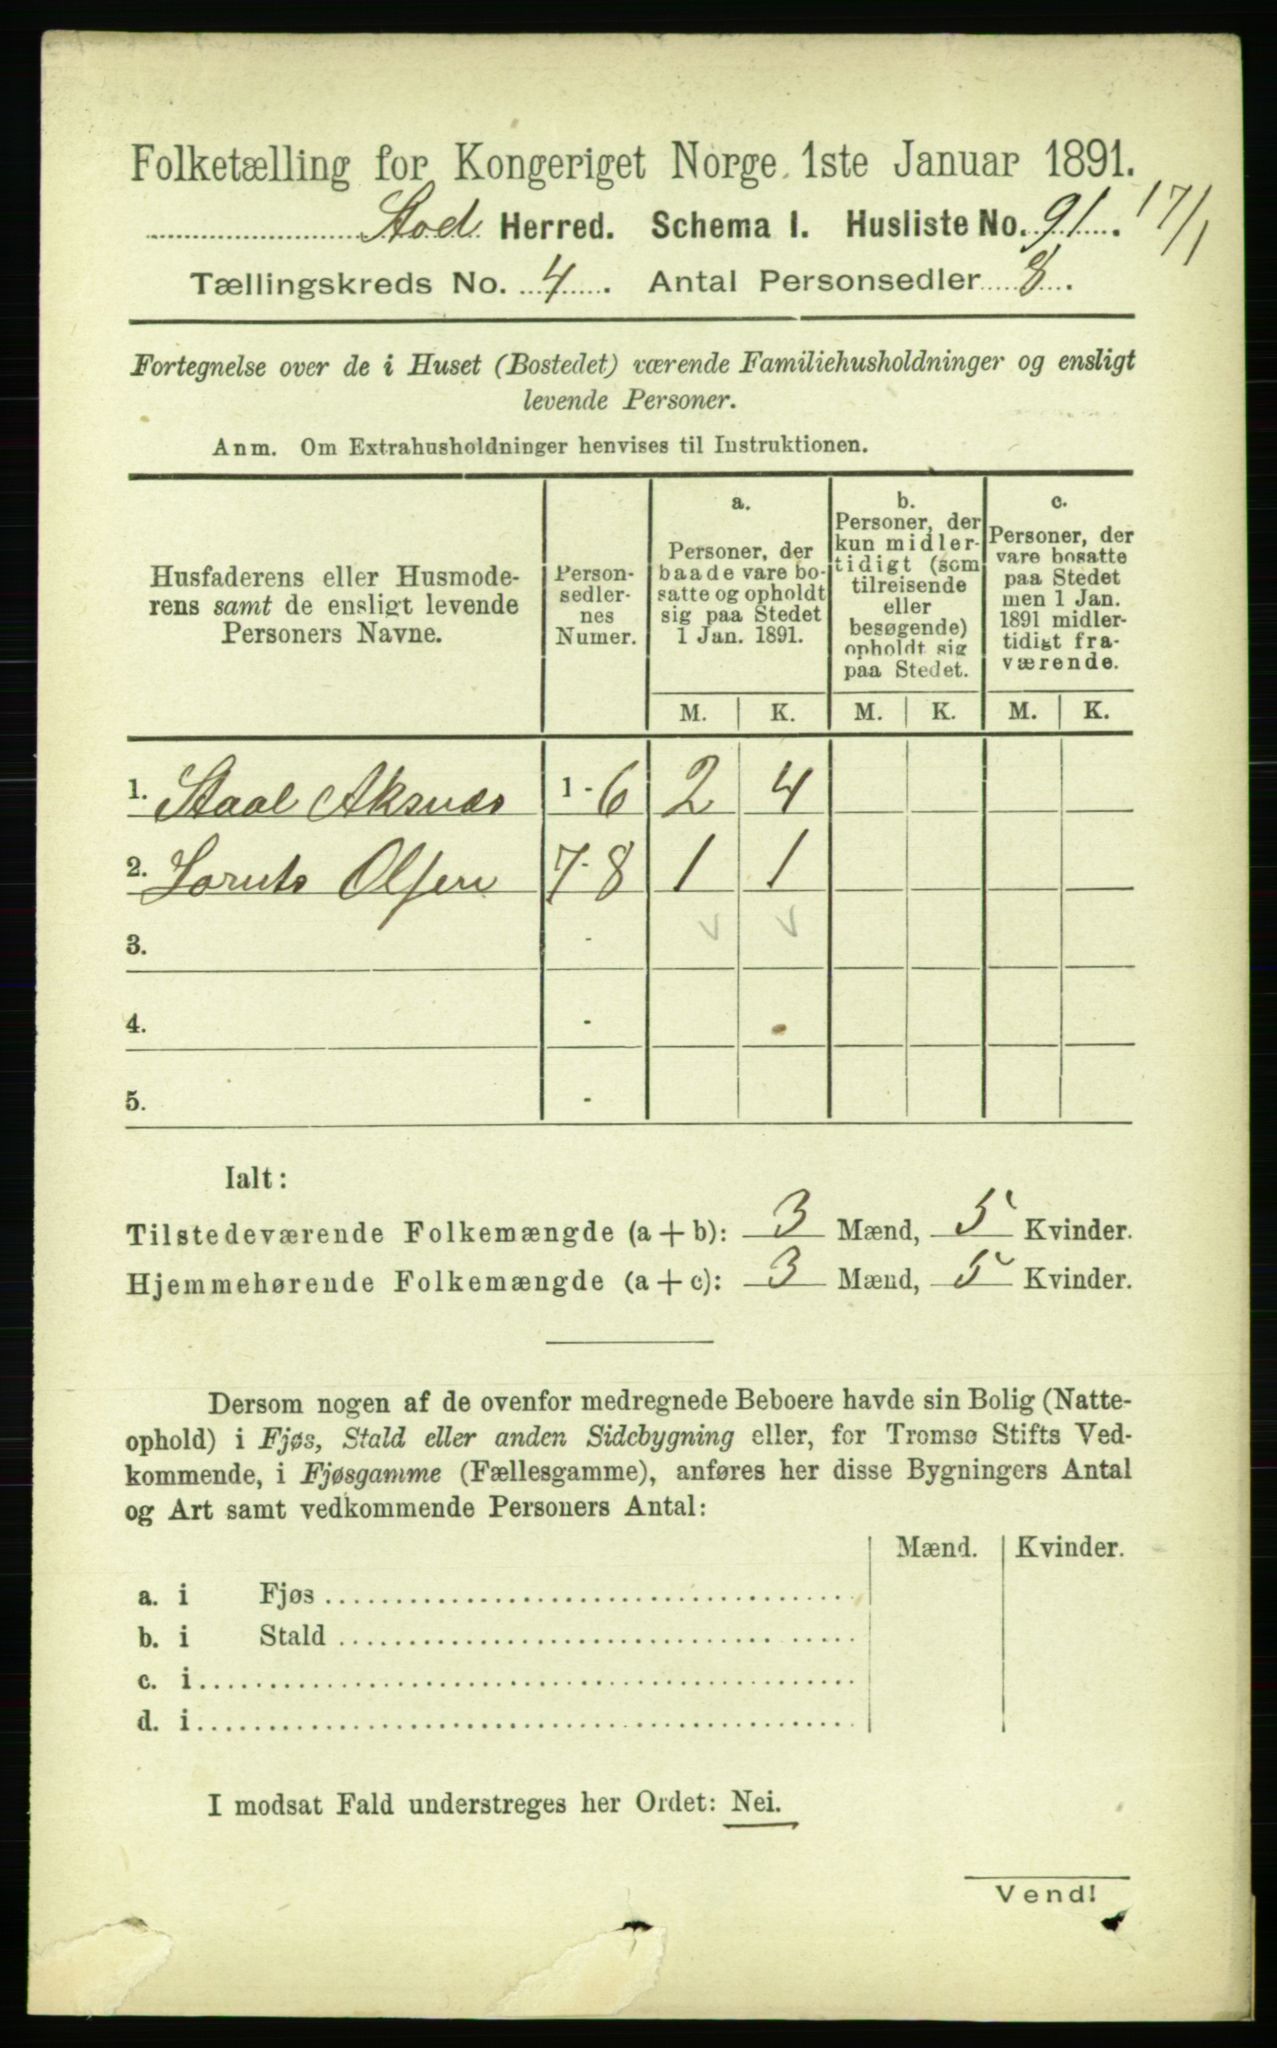 Folketælling for Kongeriget Norge 1ste Januar 1891.
Stod Herred. Schema I. Husliste No. 91. 17/1
Tællingskreds No. 4. Antal Personsedler 8.
Fortegnelse over de i Huset (Bostedet) værende Familiehusholdninger og ensligt
levende Personer.
Anm. Om Extrahusholdninger henvises til Instruktionen.
Husfaderens eller Husmode-
rens samt de ensligt levende
Personers Navne.
Person-
sedler-
nes
Numer.
a.
Personer, der
baade vare bo-
satte og opholdt
sig paa Stedet
1 Jan. 1891.
b.
Personer, der
kun midler-
tidigt (som
tilreisende
eller
besøgende)
opholdt sig
paa Stedet.
c.
Personer, der
vare bosatte
paa Stedet
men 1 Jan.
1891 midler-
tidigt fra-
værende.
M. K. M. K. M. K.
1. Staal Aksnes 1-6 2 4
2. Lornts Olsen 7-8 1 1
3. -
4. -
5. -
Ialt:
Tilstedeværende Folkemængde (a + b): 3 Mænd, 5 Kvinder.
Hjemmehørende Folkemængde (a + c): 3 Mænd, 5 Kvinder.
Dersom nogen af de ovenfor medregnede Beboere havde sin Bolig (Natte-
ophold) i Fjøs, Stald eller anden Sidebygning eller, for Tromsø Stifts Ved-
kommende, i Fjøsgamme (Fællesgamme), anføres her disse Bygningers Antal
og Art samt vedkommende Personers Antal:
Mænd. Kvinder.
a. i Fjøs
b. i Stald
c. i
d. i
I modsat Fald understreges her Ordet: Nei.
Vend!